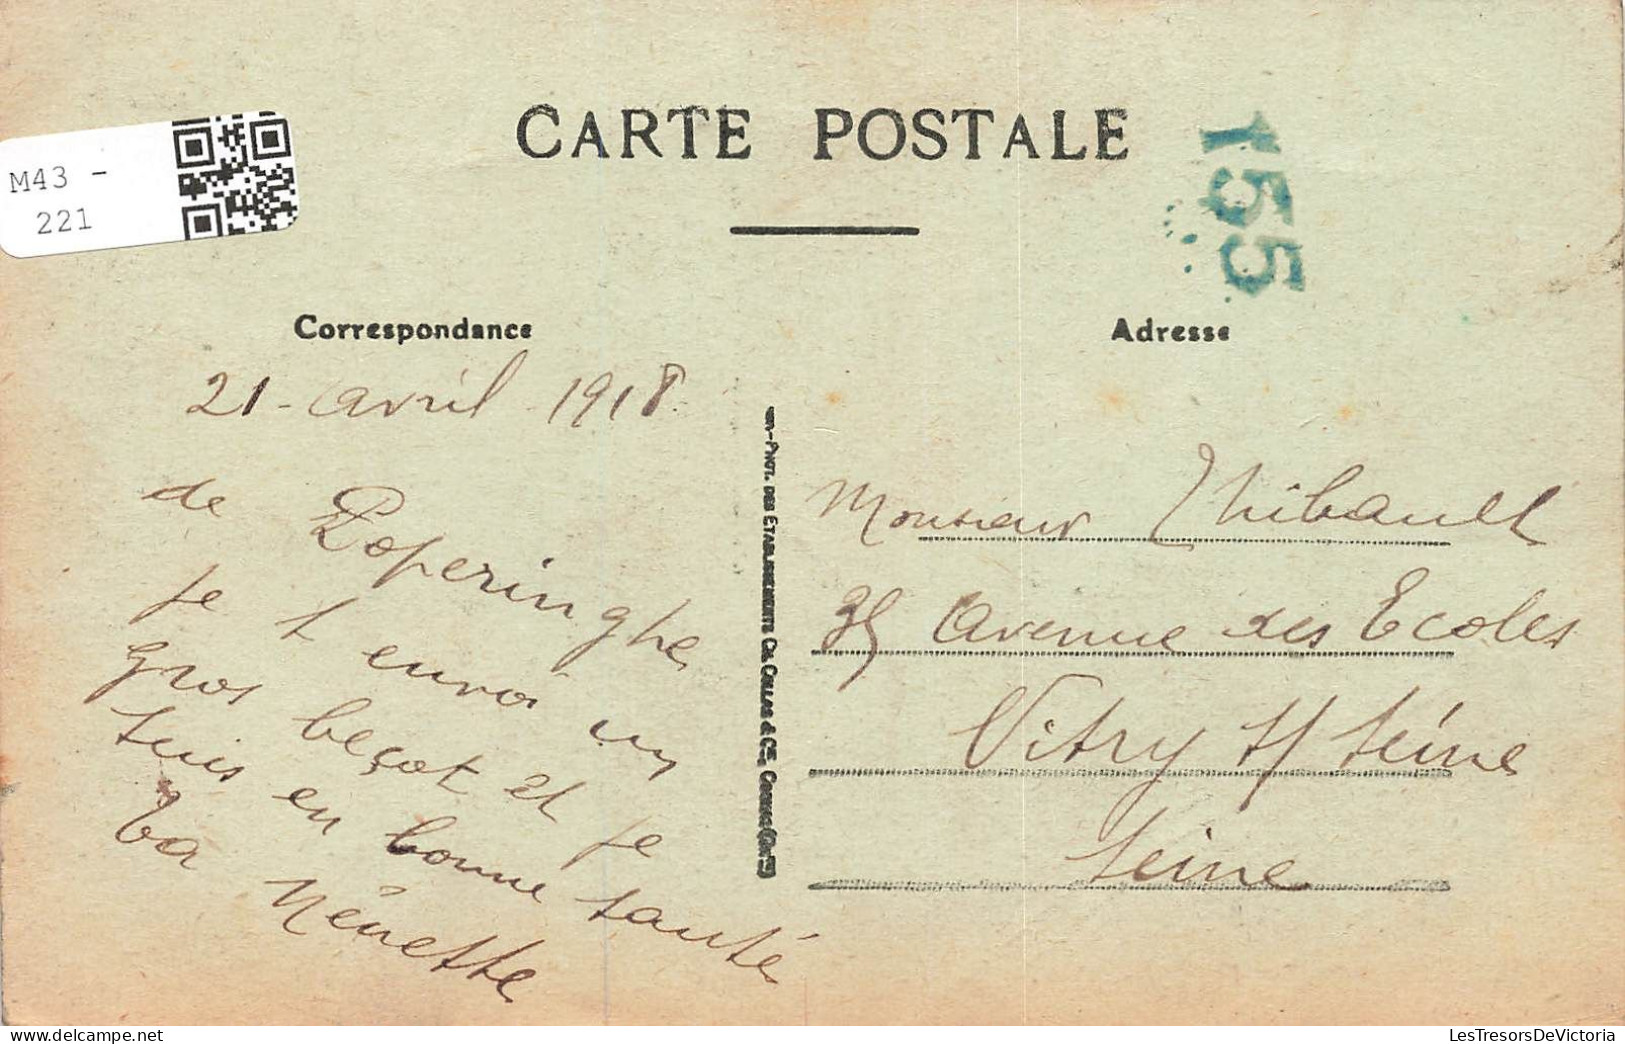 M43 -
221
CARTE POSTALE
155
Correspondance
Adresse
21 - avril - 1918
de Poperinghe
je t envoi un
gros beçot et je
suis en bonne santé
ta Nénette
PHOT. DES ETABLISSEMENTS CH. COLLAS & CIE, COGNAC
Monsieur Thibault
35 Avenue des Ecoles
Vitry s/ Seine
Seine
LesTresorsDeVictoria